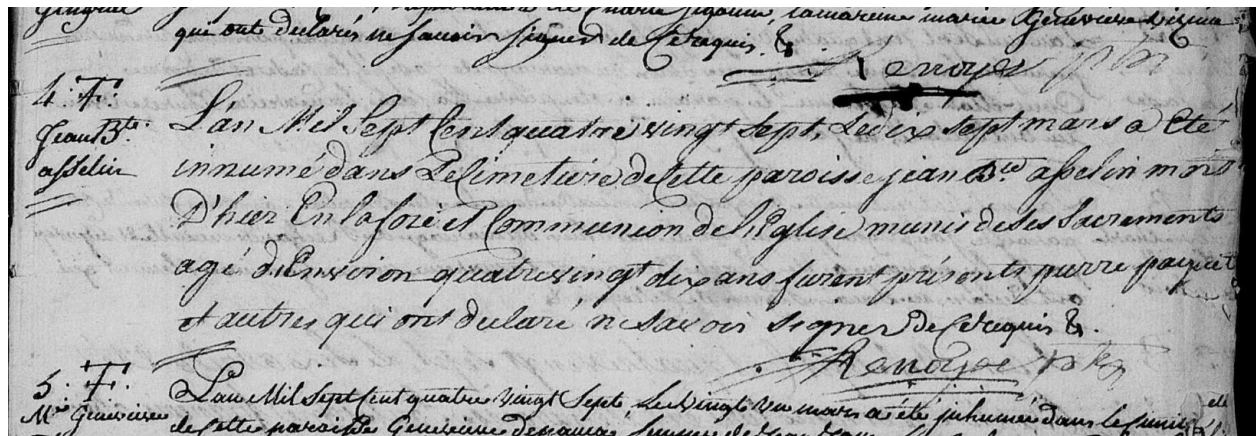 que ont declarés ne savoir signer de Ce requis. &
Renoyer ptre
4. F.
Jean Bte.
asselin
L'an Mil Sept Cent quatre vingt sept, Le dix sept mars a été
innumé dans Le Cimetiere de Cette paroisse jean Bte asselin mort
D'hier En la foie et Communion de L'Eglise munis de ses sacrements
agé d'Environ quatre vingt dix ans furent présents pierre paquet
et autres qui ont declaré ne savoir signer de Ce requis &.
Renoyer ptre
5. F.
Mie Genevieve
L'an Mil Sept Cent quatre vingt Sept, Le vingt un mars a été inhumée dans le
de Cette paroisse Genevieve